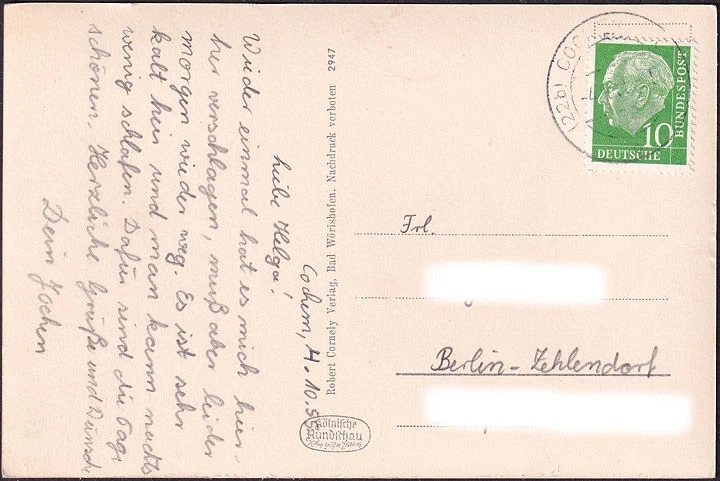 Cochem, 4.10.55
Liebe Helga!
Wieder einmal hat es mich hier-
her verschlagen, muß aber leider
morgen wieder weg. Es ist sehr
kalt hier und man kann nachts
wenig schlafen. Dafür sind die Tage
schönen. Herzliche Grüße und
Dein Jochen
Robert Cornely Verlag, Bad Wörishofen. Nachdruck verboten 2947
Kölnische
Rundschau
(22b) COCHEM
10
DEUTSCHE
BUNDESPOST
Frl.
Berlin-Zehlendorf